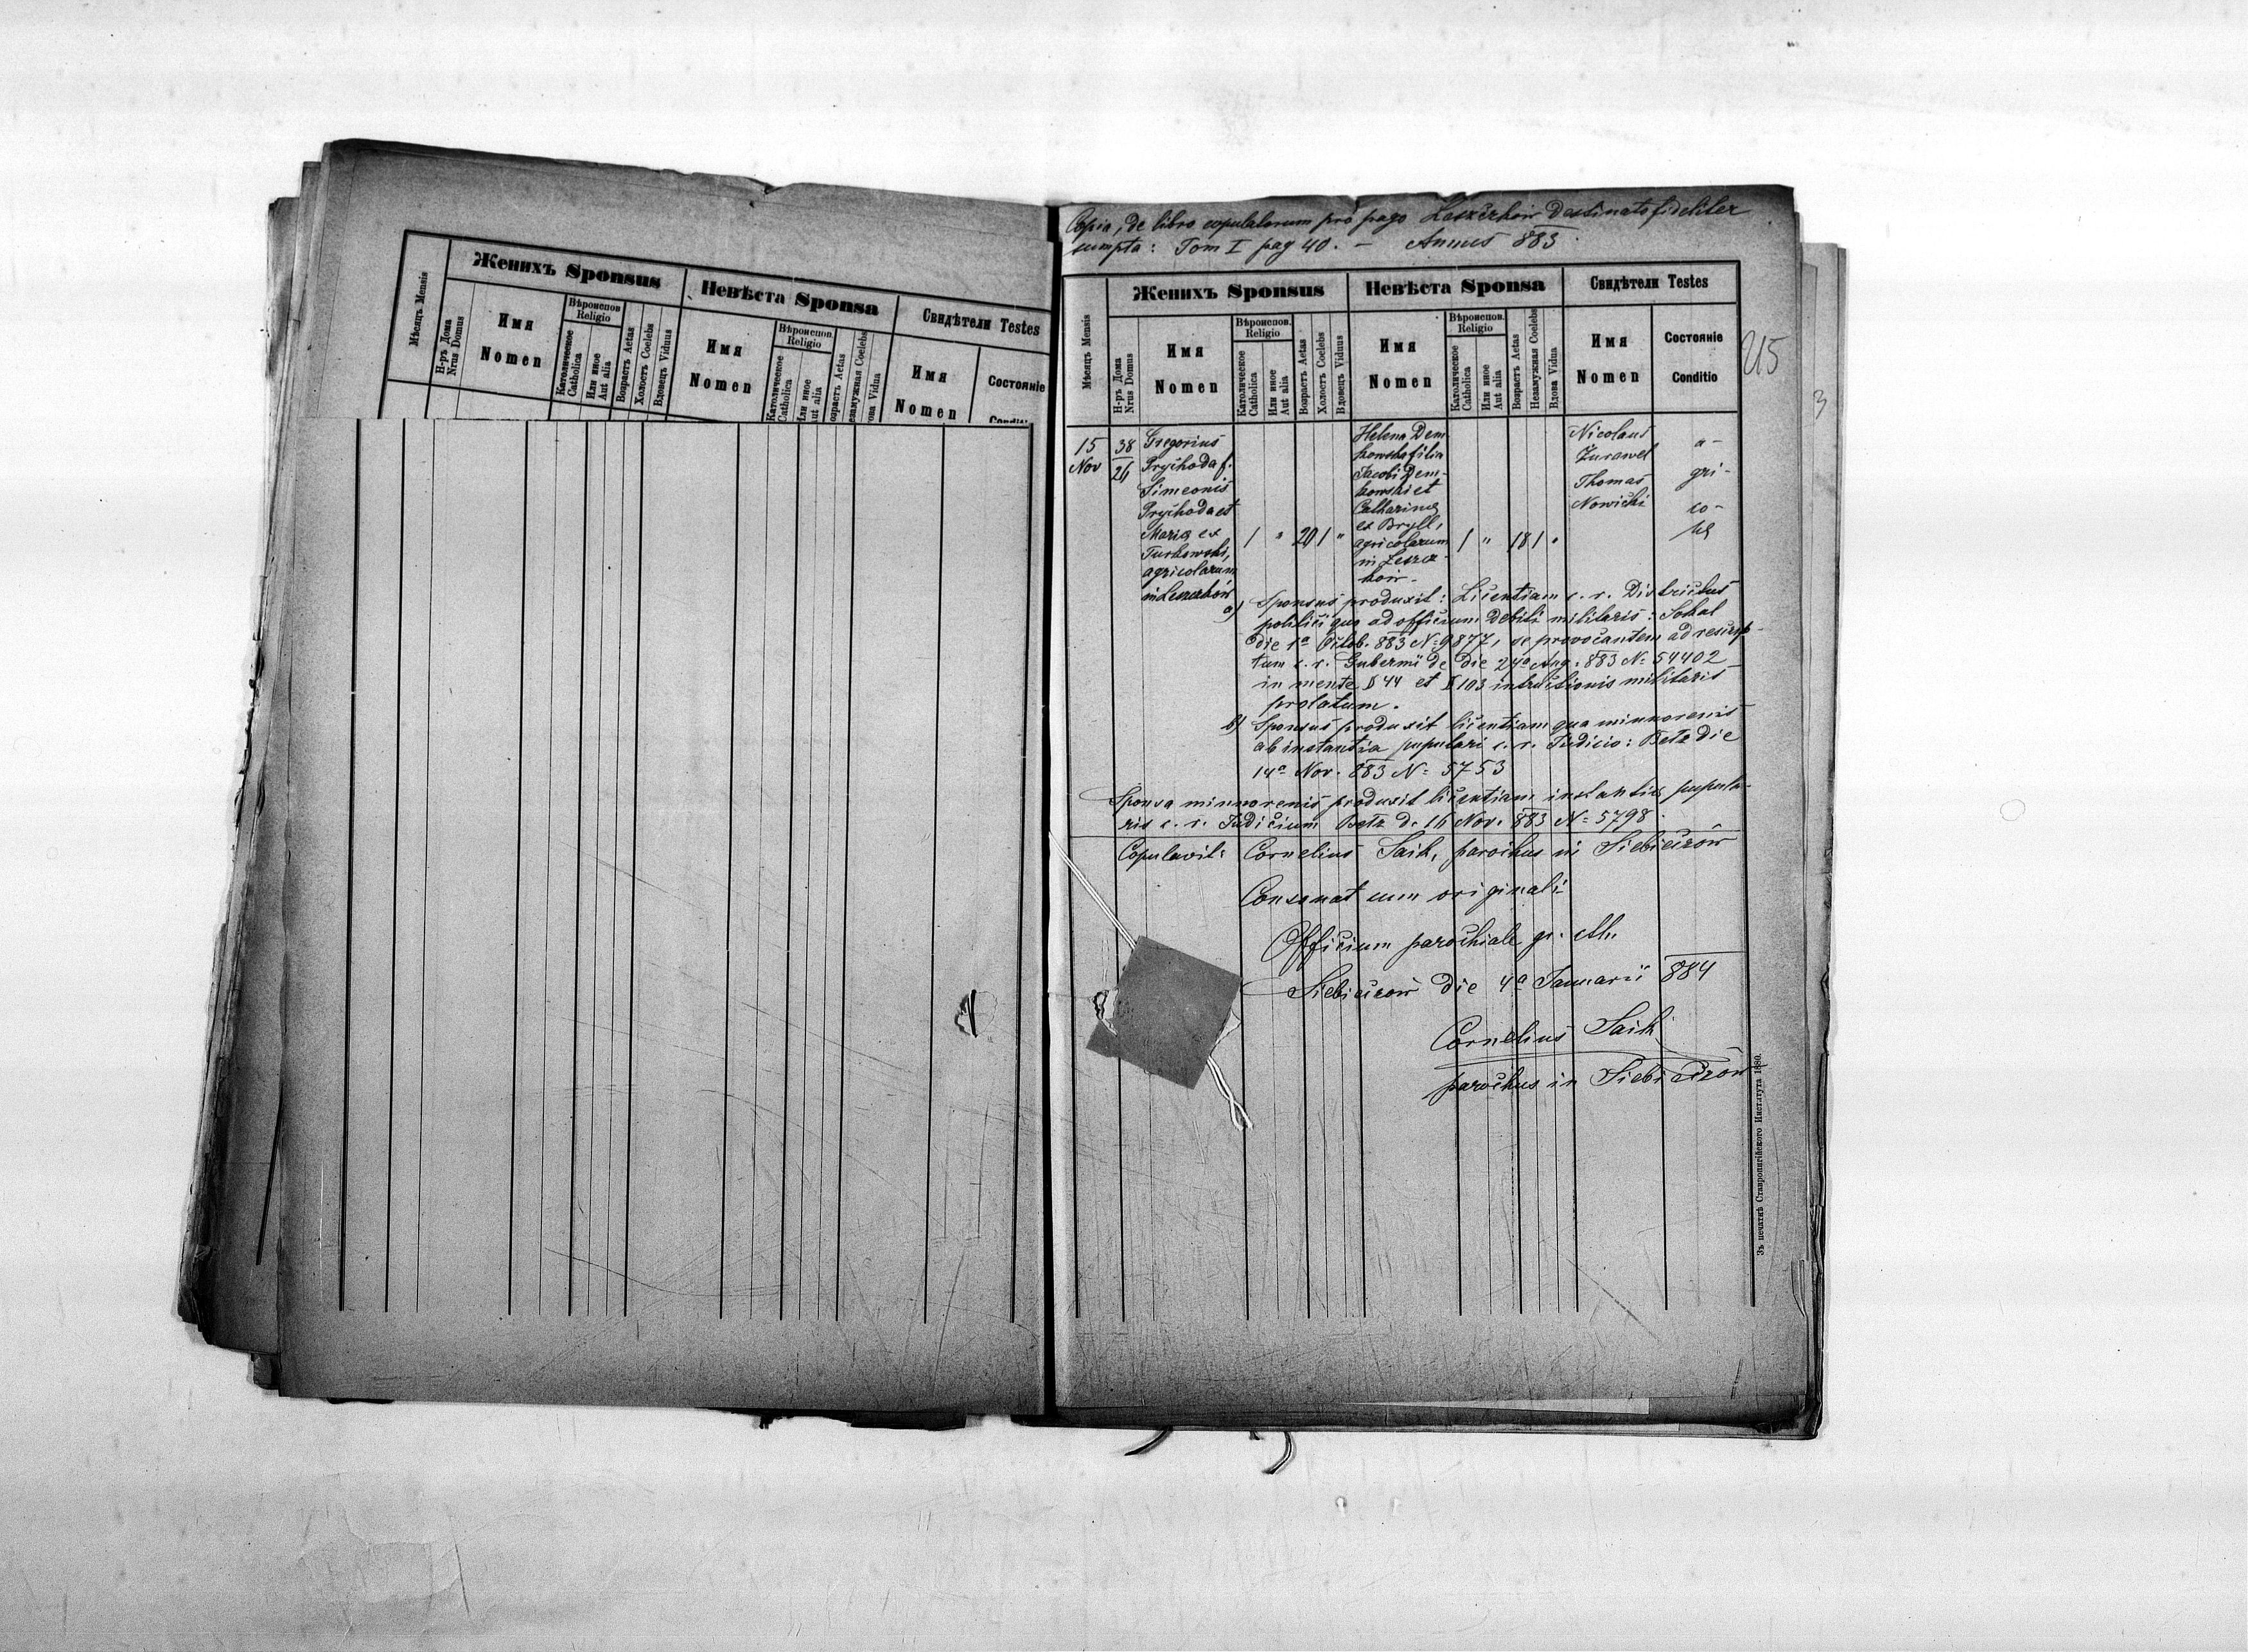 Женихъ Sponsus
Невѣста Sponsa
Свидѣтели Testes
Мѣсяцъ Mensis
Н-ръ Дома
Nrus Domus
Имя
Nomen
Вѣроиспов.
Religio
Католическое
Catholica
Или иное
Aut alia
Возрасть Aetas
Холостъ Coelebs
Вдовецъ Viduus
Имя
Nomen
Вѣроиспов.
Religio
Католическое
Catholica
Или иное
Aut alia
Возрастъ Aetas
Незамужная Coelebs
Вдова Vidua
Имя
Nomen
Состояніе
Conditio
Copia, de libro copulatorum pro pago Leszczków destinato fideliter
sumpta: Tom I pag 40. – Annus 883.
Женихъ Sponsus
Невѣста Sponsa
Свидѣтели Testes
Мѣсяцъ Mensis
Н-ръ Дома
Nrus Domus
Имя
Nomen
Вѣроиспов.
Religio
Католическое
Catholica
Или иное
Aut alia
Возрастъ Aetas
Холостъ Coelebs
Вдовецъ Viduus
Имя
Nomen
Вѣроиспов.
Religio
Католическое
Catholica
Или иное
Aut alia
Возрастъ Aetas
Незамужная Coelebs
Вдова Vidua
Имя
Nomen
Состояніе
Conditio
215
3
15
Nov
38
26
Gregorius
Prychoda f.
Simeonis
Prychoda et
Maria ex
Turkowski,
agricolarum
in Leszczków
1 " 20 1 "
Helena Dem
kowska filia
Jacobi Dem-
kowski et
Catharina
ex Bryll,
agricolarum
in Leszcz-
ków
1 " 18 1 "
Nicolaus
Żurawel
Thomas
Nowicki
a-
gri-
co-
lae
a) Sponsus produxit: Licentiam c. r. Districtus
politici qua ad officium debiti militaris: Sokal
die 1a Octob. 883 N: 9877, se provocantem ad rescrip-
tum c. r. Gubernii de die 24a Aug: 883 N: 54402
in mente § 44 et § 103 intructionis militaris
prolatum.
b) Sponsus produxit licentiam qua minnorenis
ab instantia pupulari c. r. Judicio: Betz die
14a Nov. 883 N: 5753
Sponsa minnorenis produxit licentiam instantia pupula-
ris c. r. Judicium Betz d. 16 Nov. 883 N: 5798.
Copulavit: Cornelius Saik, parochus in Siebieczów
Consonat cum originali
Officium parochiale gr. cth.
Siebieczów die 4a Januarii 884
Cornelius Saik
parochus in Siebieczów
Зъ печатнѣ Ставропигійского Института 1880.